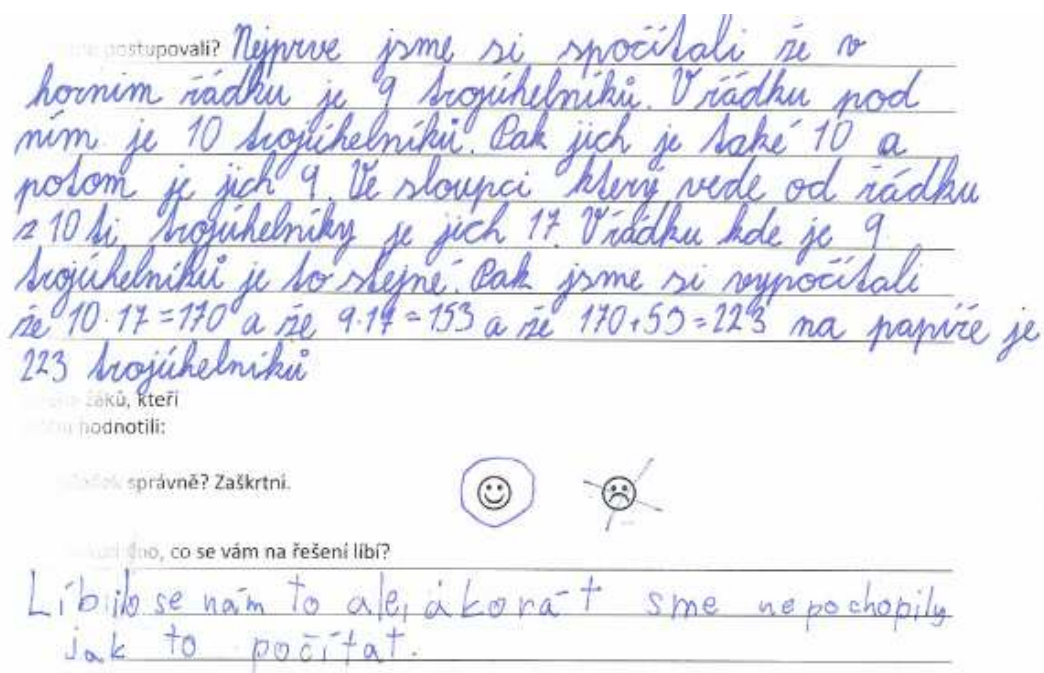 postupovali? Nejprve jsme si spočítali že v
horním řádku je 9 trojúhelníků. V řádku pod
ním je 10 trojúhelníků. Pak jich je také 10 a
potom je jich 9. Ve sloupci který vede od řádku
z 10 ti trojúhelníky je jich 17. V řádku kde je 9
trojúhelníků je to stejné. Pak jsme si vypočítali
že 10·17=170 a že 9·17=153 a že 170+53=223 na papíře je
223 trojúhelníků
žáků, kteří
hodnotili:
správně? Zaškrtni.
co se vám na řešení líbí?
Líbilo se nám to ale, akorát sme nepochopily
jak to počítat.